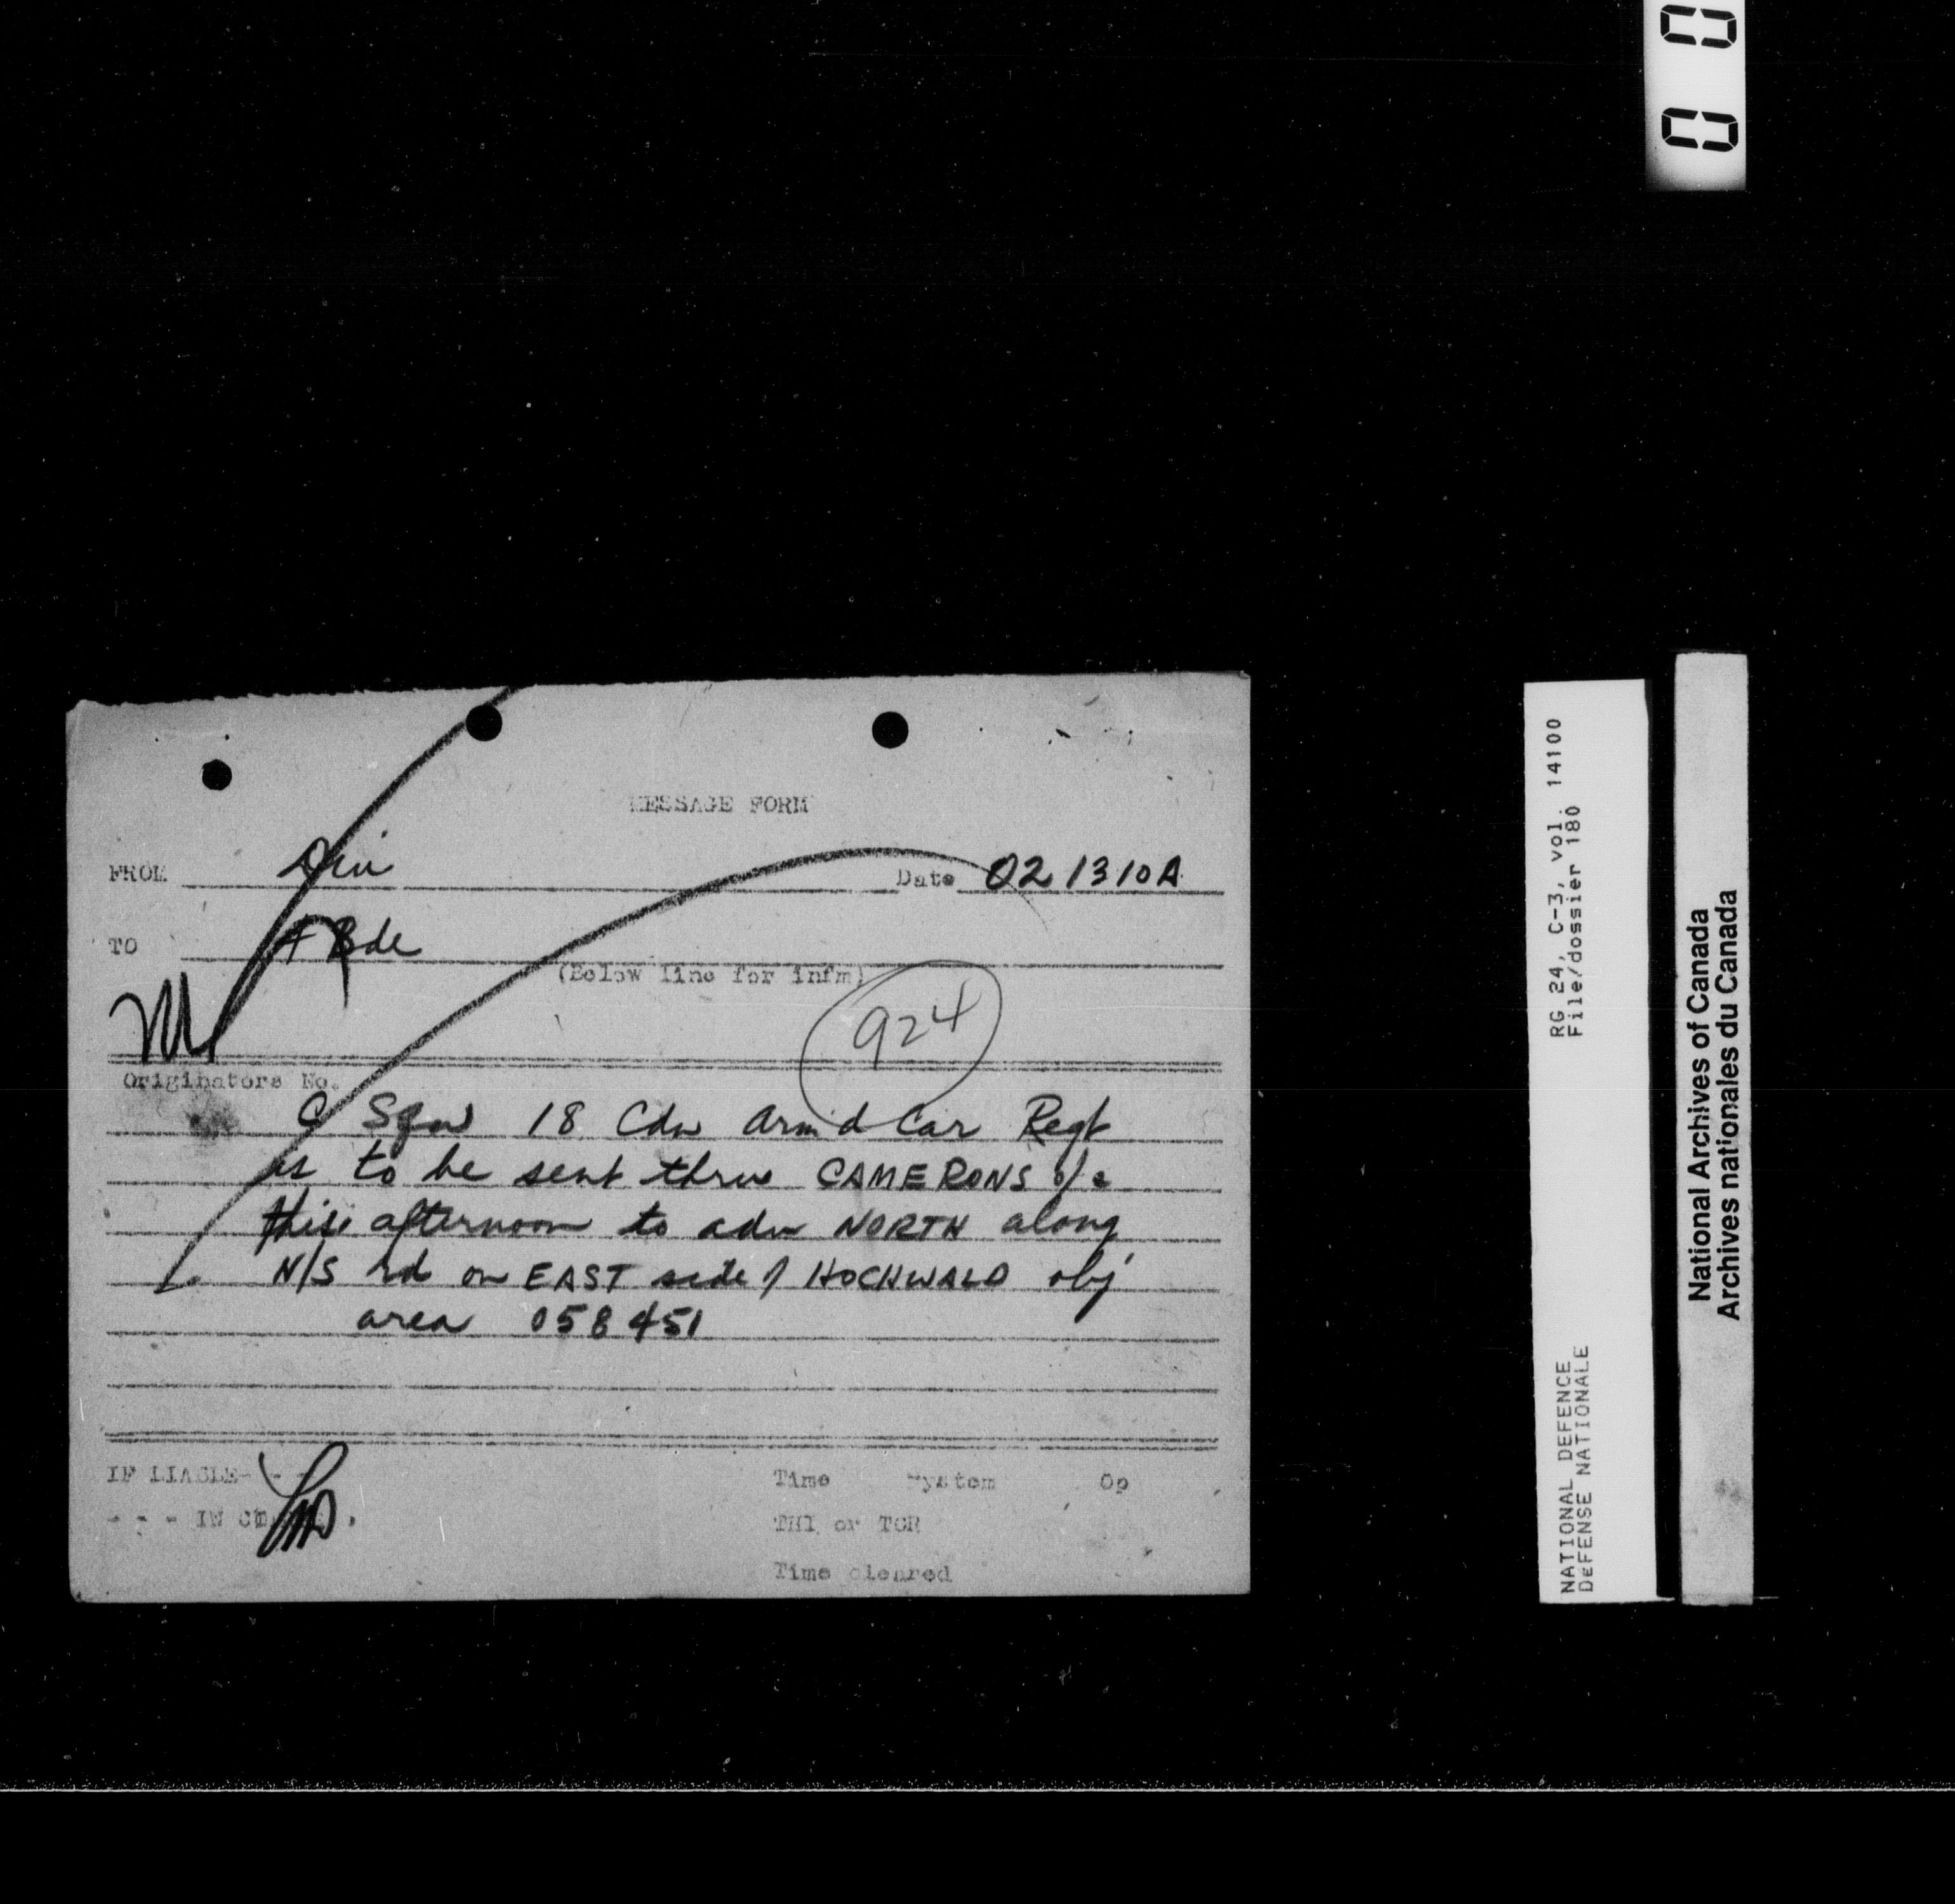 0 0
MESSAGE FORM
FROM Div Date 021310A
TO Bde
(Below line for infm)
924
Originators No.
C Sqn 18 Cdn Armd Car Regt
is to be sent thru CAMERONS
this afternoon to adv NORTH along
N/S rd on EAST side of HOCHWALD obj
area 058451
IF LIABLE- - -
- - - IN
Time System Op
THI or TOR
Time cleared
RG 24, C-3, vol. 14100
File/dossier 180
NATIONAL DEFENCE
DéFENSE NATIONALE
National Archives of Canada
Archives nationales du Canada